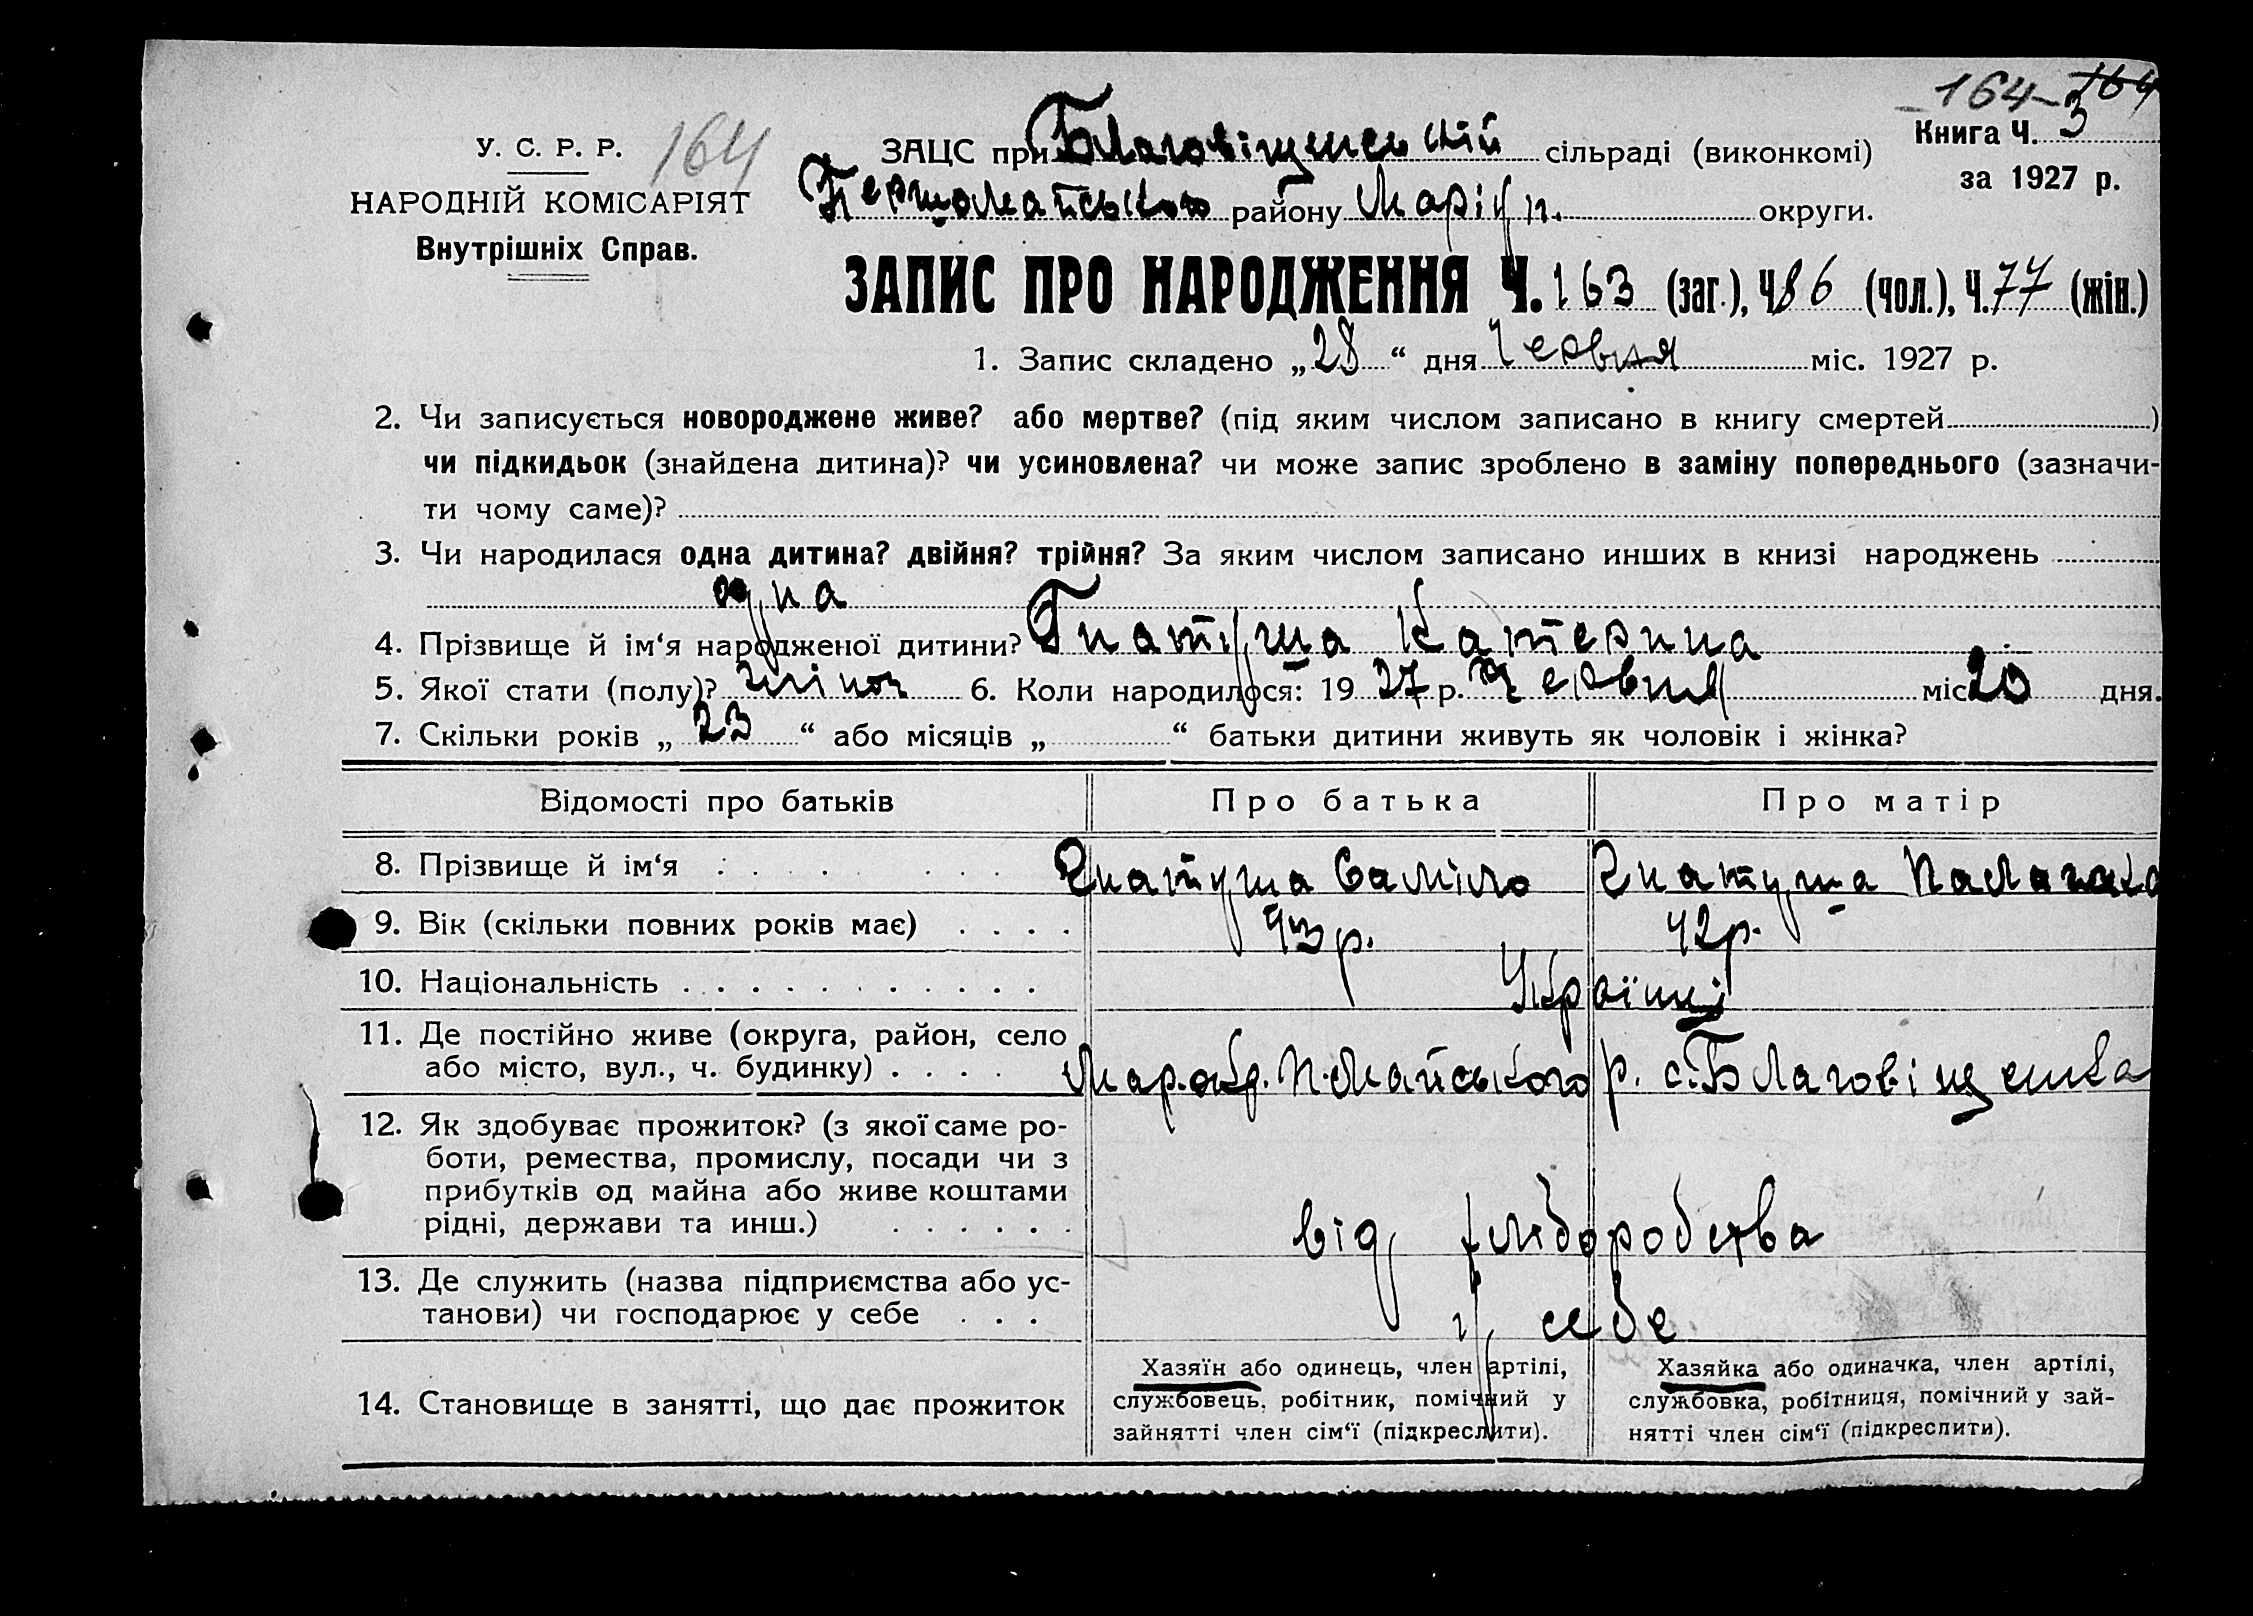 164 164
У. С. Р. Р. 164
НАРОДНІЙ КОМІСАРІЯТ
Внутрішніх Справ.
ЗАЦС при Благовіщенській сільраді (виконкомі)
Книга Ч. 3
за 1927 р.
Першомайського району Маріуп. округи.
ЗАПИС ПРО НАРОДЖЕННЯ Ч. 163 (заг.), Ч. 86 (чол.), Ч. 77 (жін.)
1. Запис складено „28“ дня Червня міс. 1927 р.
2. Чи записується новороджене живе? або мертве? (під яким числом записано в книгу смертей )
чи підкидьок (знайдена дитина)? чи усиновлена? чи може запис зроблено в заміну попереднього (зазначи-
ти чому саме)?
3. Чи народилася одна дитина? двійня? трійня? За яким числом записано инших в книзі народжень
одна
4. Прізвище й ім‘я народженої дитини? Гнатуша Катерина
5. Якої стати (полу)? жіноч 6. Коли народилося: 19 27 р. Червня міс 20 дня.
7. Скільки років „ 23 “ або місяців „ “ батьки дитини живуть як чоловік і жінка?
Відомості про батьків Про батька Про матір
8. Прізвище й ім‘я Гнатуша Саміло Гнатуша
9. Вік (скільки повних років має) 43 р. 42 р.
10. Національність Українці
11. Де постійно живе (округа, район, село
або місто, вул., ч. будинку) Мар. окр. П-Майського р. с. Благовіщенка
12. Як здобуває прожиток? (з якої саме ро-
боти, ремества, промислу, посади чи з
прибутків од майна або живе коштами
рідні, держави та инш.) від хліборобства
13. Де служить (назва підприємства або ус-
танови) чи господарює у себе у себе
14. Становище в занятті, що дає прожиток
Хазяїн або одинець, член артілі,
службовець, робітник, помічний у
зайнятті член сім‘ї (підкреслити).
Хазяйка або одиначка, член артілі,
службовка, робітниця, помічний у зай-
нятті член сім‘ї (підкреслити).